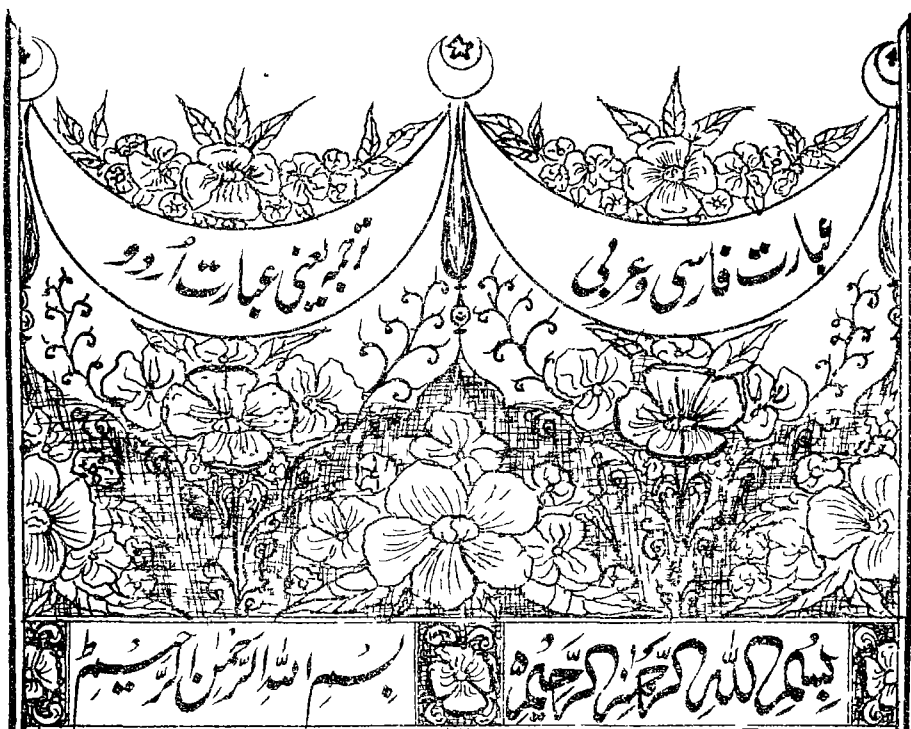 عبارت فارسی و عربی
ترجمہ یعنی عبارت اُردو
بِسْمِ اللّٰهِ الرَّحْمٰنِ الرَّحِيْمِ
بِسْمِ اللّٰهِ الرَّحْمٰنِ الرَّحِيْمِ